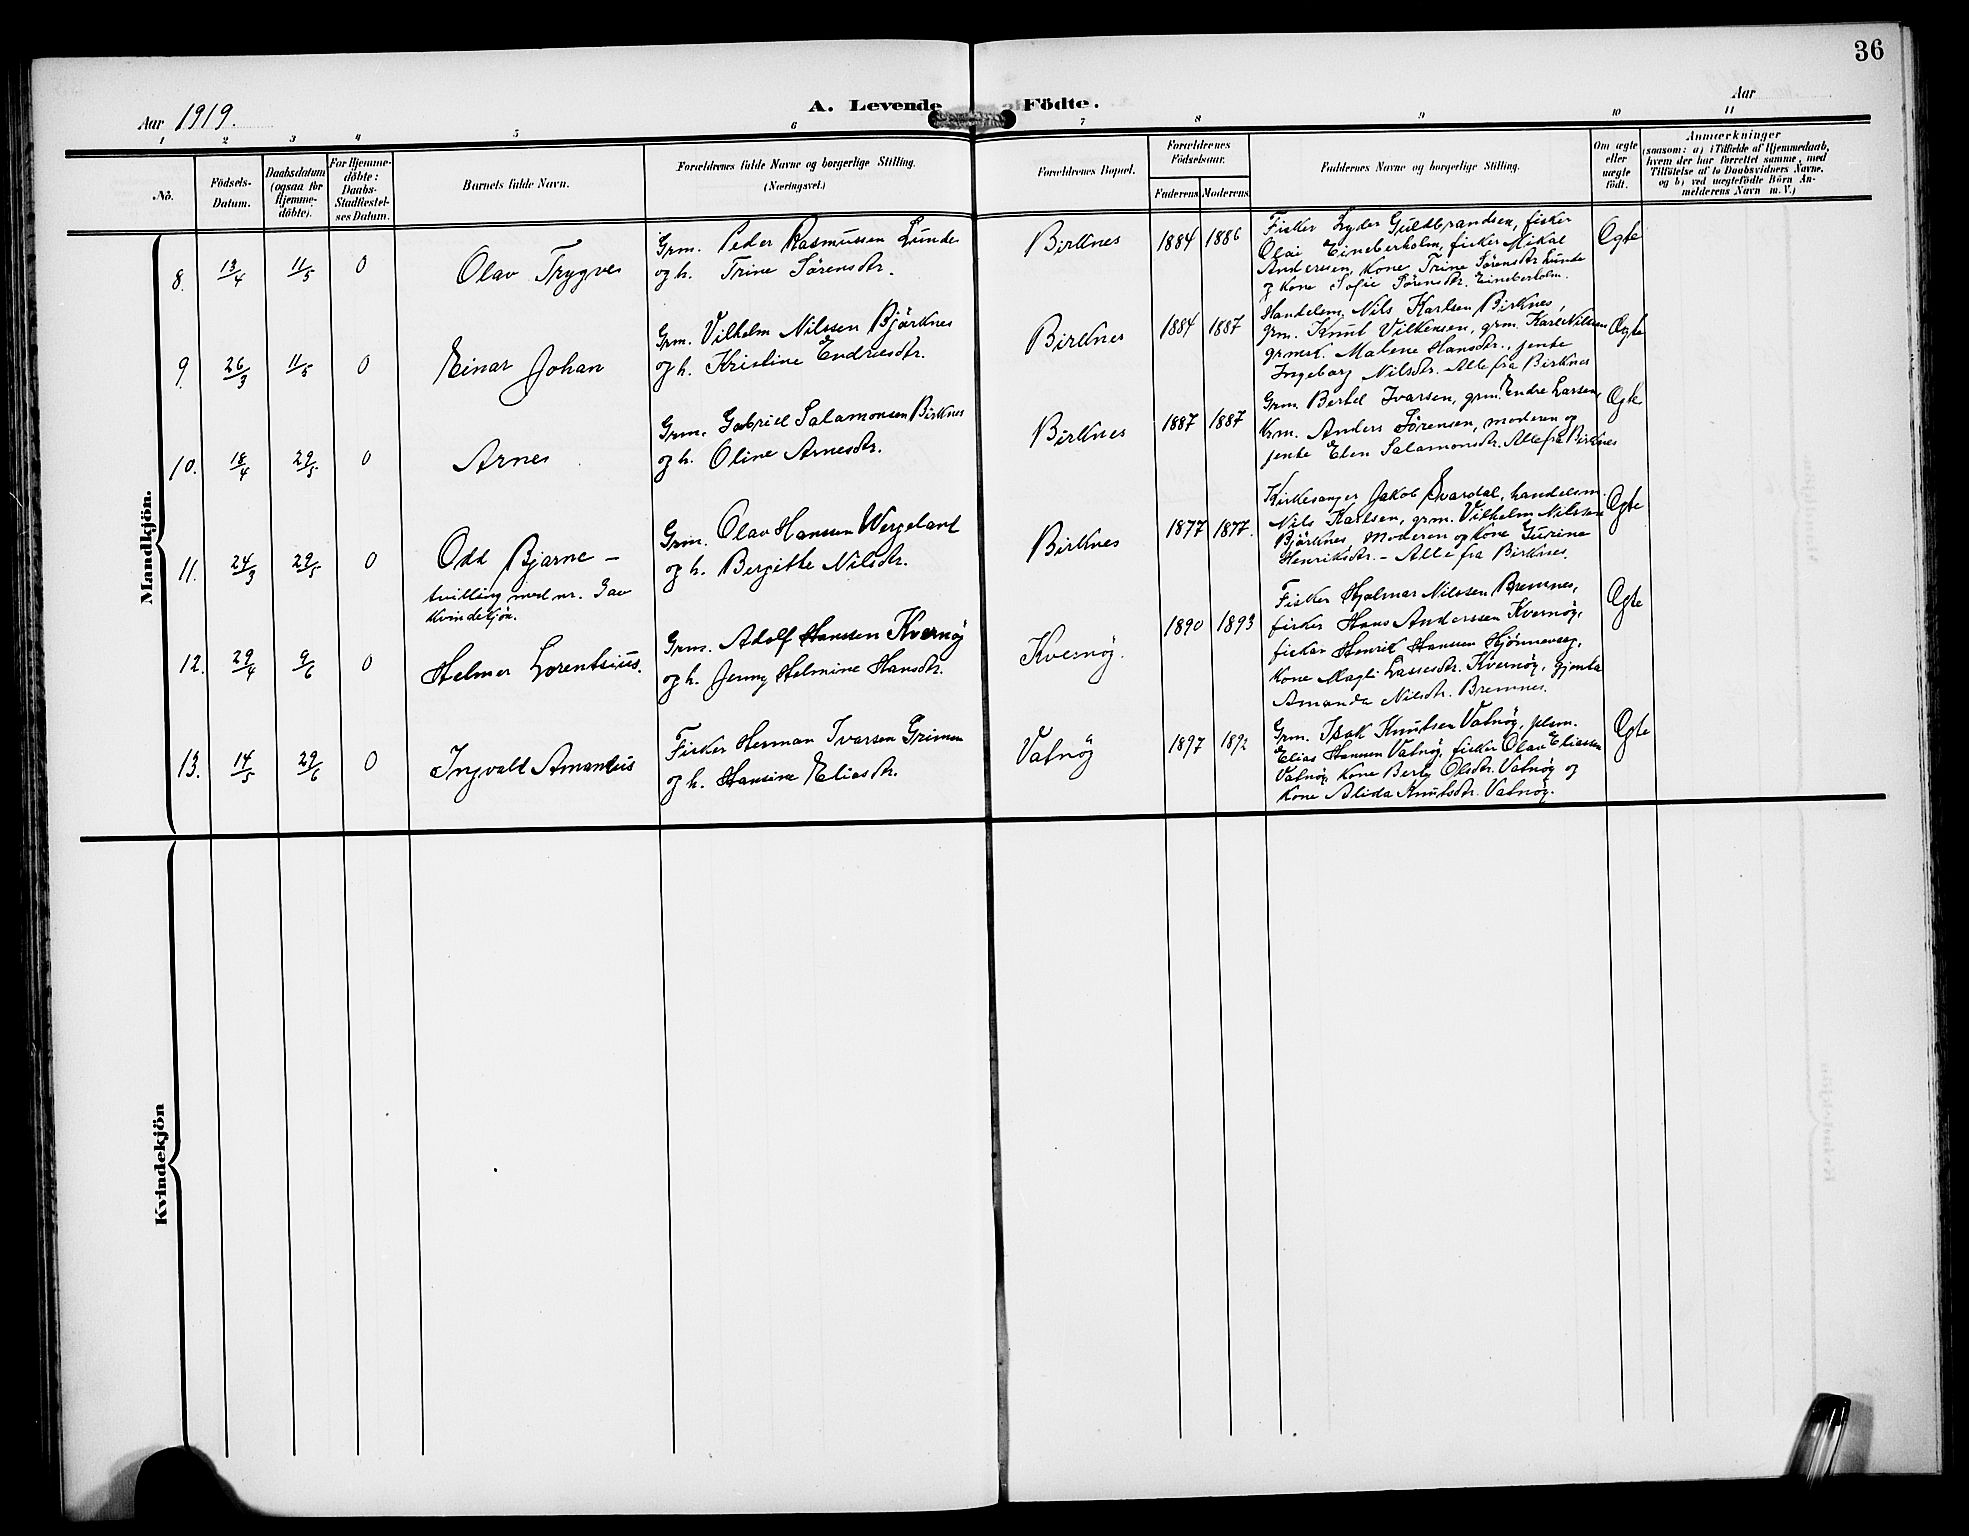 36
A. Levende Födte.
Aar 1919.
Aar
1 2 3 4 5 6 7 8 9 10 11
Nö.
Födsels-Datum.
Daabsdatum (ogsaa for Hjemme-döbte).
For Hjemme-döbte: Daabs-Stadfæstel-ses Datum.
Barnets fulde Navn.
Forældrenes fulde Navne og borgerlige Stilling.
(Næringsvei.)
Forældrenes Bopæl.
Forældrenes Födselsaar.
Faderens Moderens
Faddernes Navne og borgerlige Stilling.
Om ægte eller uægte födt.
Anmærkninger
(saasom: a) i Tilfælde af Hjemmedaab,
hvem der har forrettet samme, med
Tilföielse af to Daabsvidners Navne,
og b) ved uægtefödte Börn An-
melderens Navn m. V.)
Mandkjön.
8. 13/4 11/5 0 Olav Trygve
Grm. Peder Rasmussen Lunde
og h. Trine Sörensdtr.
Birknes 1884 1886
Fisker Lyder Guldbrandsen, fisker
Olai Eineberholm, fisker Mikal
Anderssen, Kone Trine Sörensdtr. Lunde
og Kone Sofie Sörensdtr. Eineberholm.
Ægte
9. 26/3 11/5 0 Einar Johan
Grm. Vilhelm Nilssen Björknes
og h. Kristine Endresdtr.
Birknes 1884 1887
Handelsm. Nils Karlsen Birknes,
grm. Knut Vilkensen, grm. Karl Nilssen
grmst. Malene Hansdtr., jente
Ingeborg Nilsdtr. Alle fra Birknes
Ægte
10. 18/4 29/5 0 Arne
Grm. Gabriel Salamonsen Birknes
og h. Oline Arnesdtr.
Birknes 1887 1887
Grm. Bertel Ivarsen, grm. Endre Larsen
Grm. Anders Sørensen, moderen og
jente Elen Salamonsdtr. Alle fra Birknes
Ægte
11. 24/3 29/5 0 Odd Bjarne –
tvilling med nr. 3 av
kvindekjön.
Grm. Olav Hansen Wergeland
og h. Bergitte Nilsdtr.
Birknes 1877 1877.
Kirkesanger Jakob Svardal, handelsm.
Nils Karlsen, grm. Vilhelm Nilssen
Björknes, Moderen og Kone Gurine
Henriksdtr. – Alle fra Birknes.
Ægte
12. 29/4 9/6 0 Helmer Lorentsius.
Grm. Adolf Hanssen Kvernöy
og h. Jenny Helmine Hansdtr.
Kvernöy. 1890 1893
Fisker Hjalmar Nilssen Bremnes,
fisker Hans Anderssen Kvernöy,
fisker Henrik Hanssen Hjönnevaag,
Kone Magli Lassesdtr. Kvernöy, gjente
Amanda Nilsdtr. Bremnes.
Ægte
13. 14/5 29/6 0 Ingvald Amandus
Fisker Herman Ivarsen Grimen
og h. Hansine Eliasdtr.
Vatnöy 1897 1892
Grm. Isak Knutsen Vatnöy, plsm.
Elias Hansen Vatnöy, fisker Olav Eliassen
Vatnöy, Kone Berta Olsdtr. Vatnöy og
Kone Alida Knutsdtr. Vatnöy.
Ægte
Kvindekjön